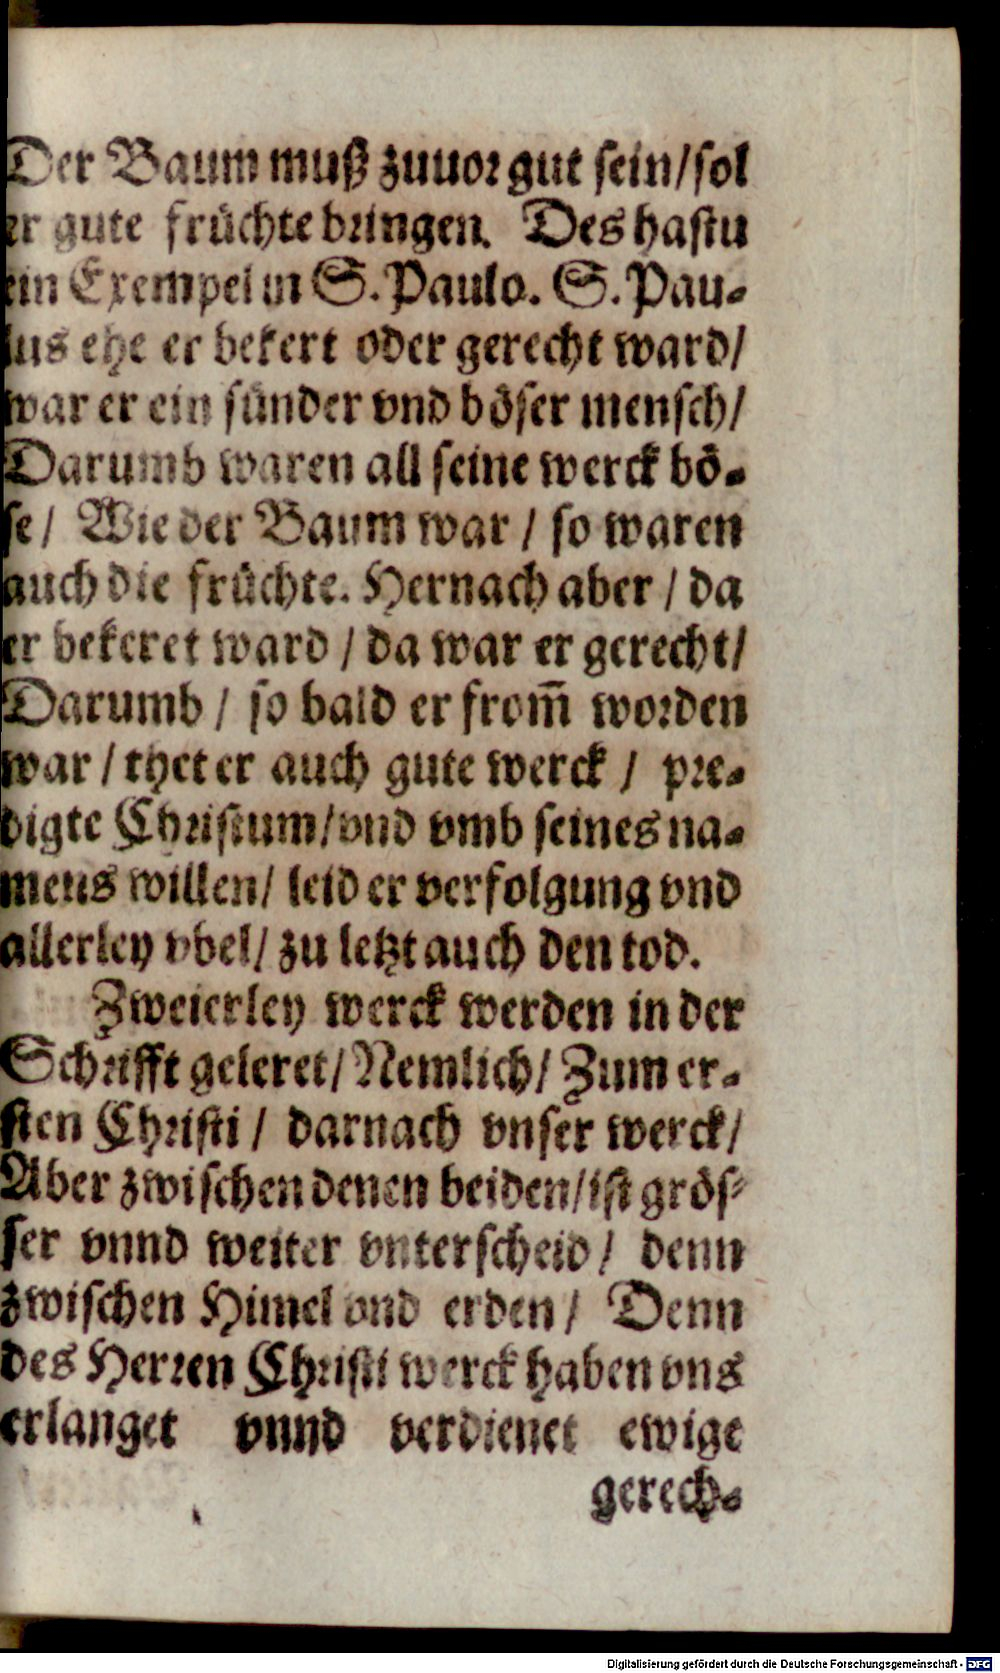 Der Baum muß zuuor gut sein/sol
er gute früchte bringen. Des hastu
ein Exempel in S. Paulo. S. Pau-
lus ehe er bekert oder gerecht ward/
war er ein sünder vnd böser mensch/
Darumb waren all seine werck bö-
se/ Wie der Baum war / so waren
auch die früchte. Hernach aber / da
er bekeret ward / da war er gerecht/
Darumb / so bald er from̃ worden
war / thet er auch gute werck / pre-
digte Christum/vnd vmb seines na-
mens willen/ leid er verfolgung vnd
allerley vbel/ zu letzt auch den tod.
Zweierley werck werden in der
Schrifft geleret/ Nemlich/ Zum er-
sten Christi / darnach vnser werck/
Aber zwischen denen beiden/ist grös-
ser vnnd weiter vnterscheid/ denn
zwischen Himel vnd erden/ Denn
des Herren Christi werck haben vns
erlanget vnnd verdienet ewige
gerech-
Digitalisierung gefördert durch die Deutsche Forschungsgemeinschaft - DFG